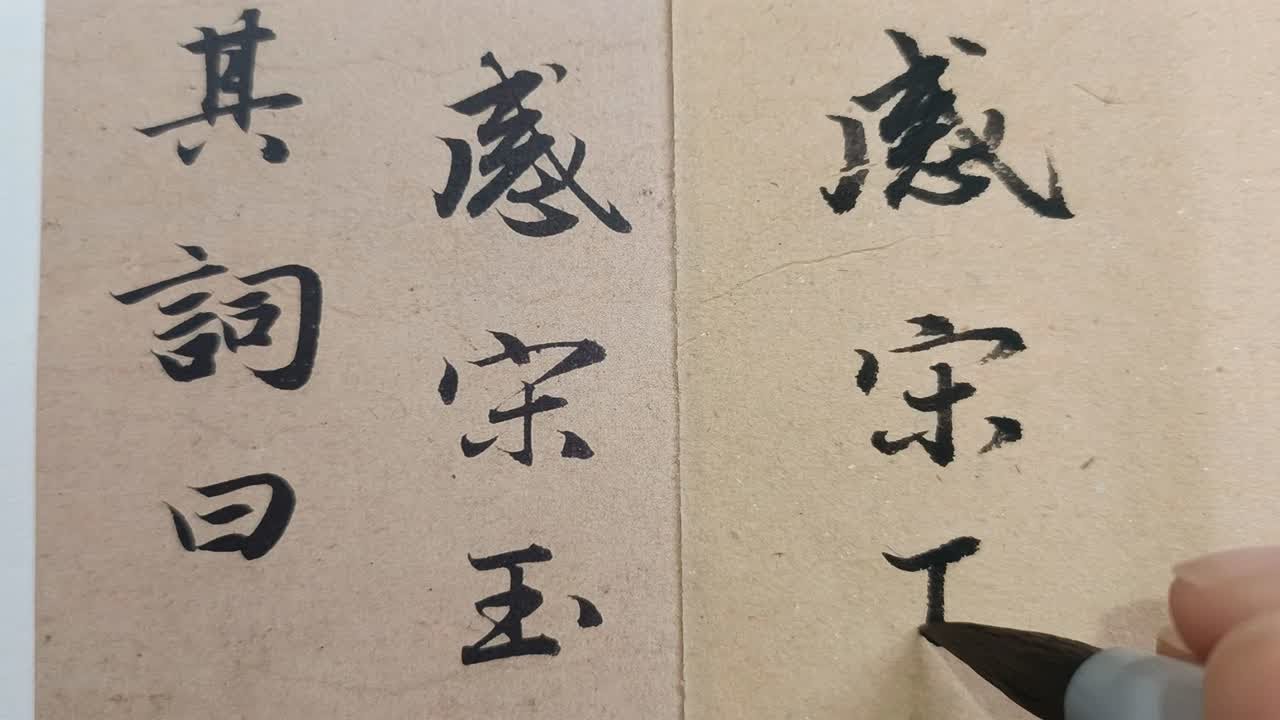 感宋
感宋玉
其詞曰